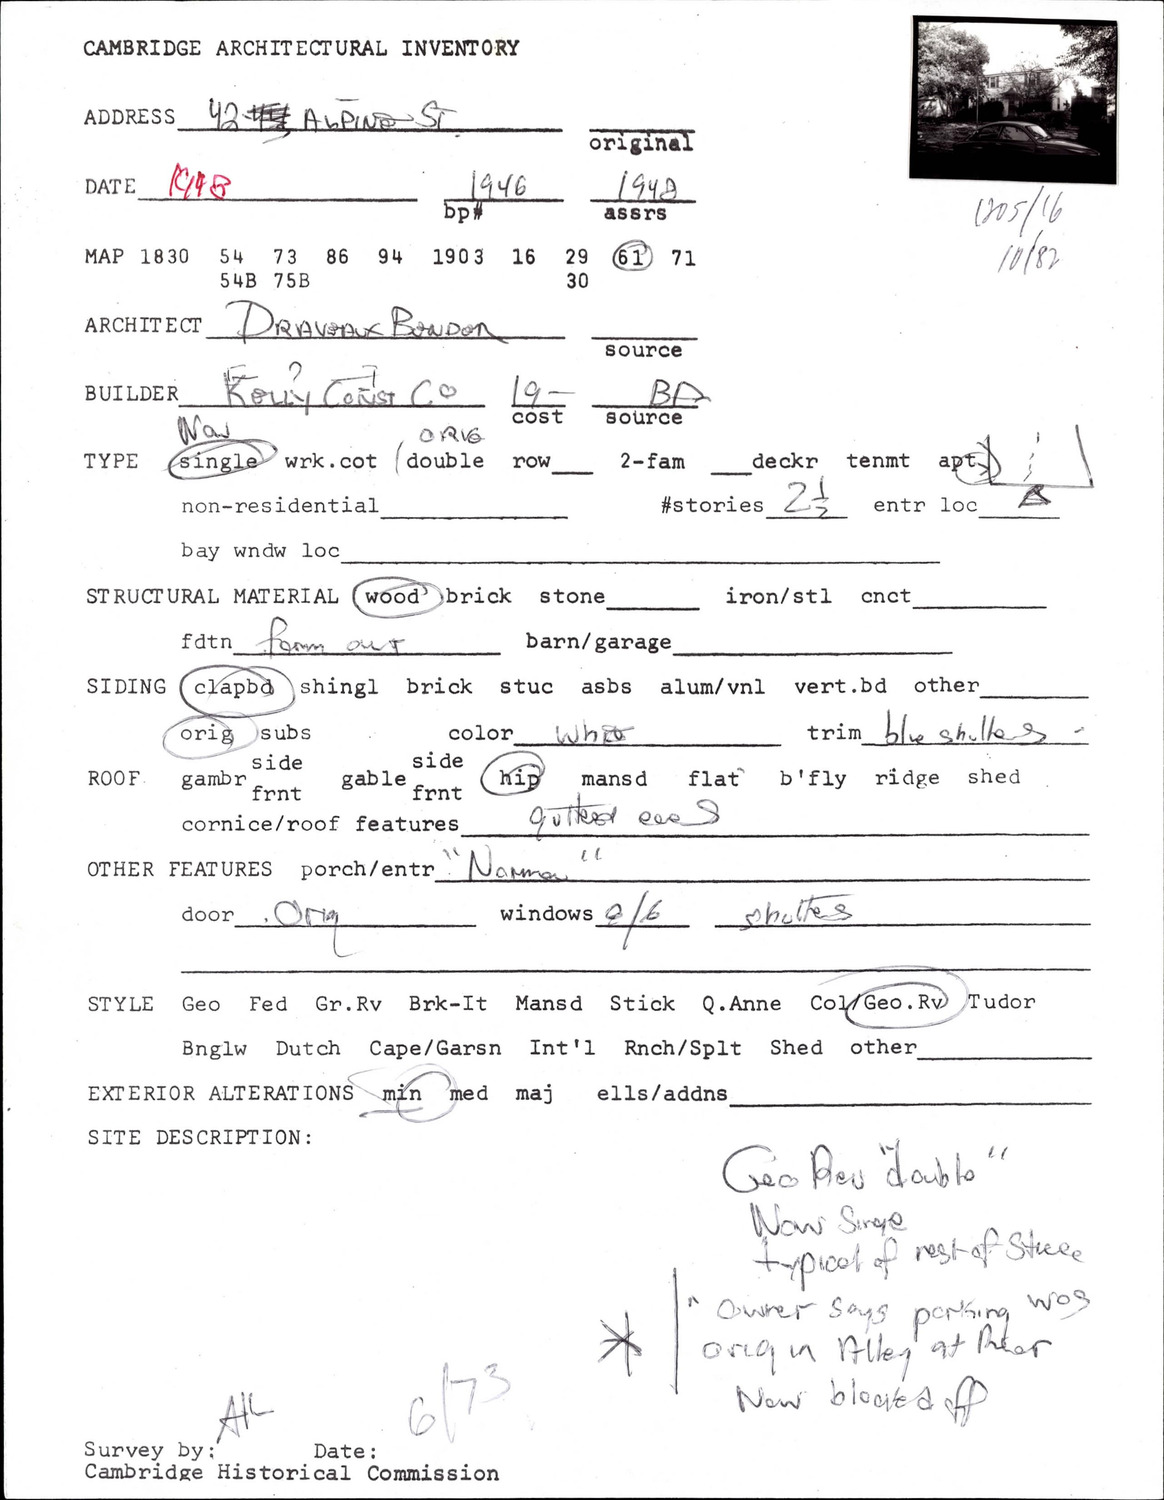 CAMBRIDGE ARCHITECTURAL INVENTORY
ADDRESS 42 ALPINE ST
original
DATE 1946 1948
bp# assrs
1205/16
10/82
MAP 1830 54 73 86 94 1903 16 29 61 71
54B 75B 30
ARCHITECT
source
BUILDER Kelly Const Co 19— BA
? cost source
Now ORIG
TYPE single wrk.cot double row 2-fam deckr tenmt apt
non-residential #stories 2 1/2 entr loc
bay wndw loc
STRUCTURAL MATERIAL wood brick stone iron/stl cnct
fdtn barn/garage
SIDING clapbd shingl brick stuc asbs alum/vnl vert.bd other
orig subs color White trim blue shutters
ROOF gambr side frnt gable side frnt hip mansd flat b'fly ridge shed
cornice/roof features
OTHER FEATURES porch/entr
door Orig windows 8/6 shutters
STYLE Geo Fed Gr.Rv Brk-It Mansd Stick Q.Anne Col/Geo.Rv Tudor
Bnglw Dutch Cape/Garsn Int'l Rnch/Splt Shed other
EXTERIOR ALTERATIONS min med maj ells/addns
SITE DESCRIPTION:
Geo Rev "double"
Now Single
typical of rest of Street
" Owner says parking was
orig in Alley at Rear
Now blocked off
6/73
Survey by: Date:
Cambridge Historical Commission